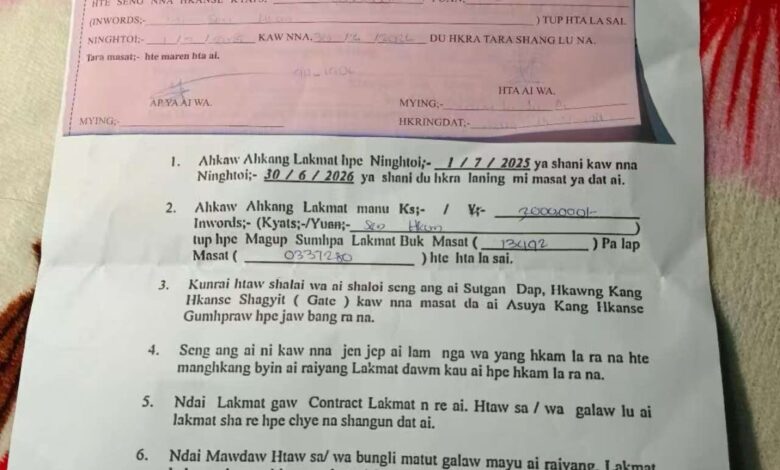 HTE SENG NNA HKANSE KYATS,
YUAN,
(INWORDS;-
) TUP HTA LA SAI.
NINGHTOI;- 1/7/2025 KAW NNA, 30/6/2026 DU HKRA TARA SHANG LU NA.
Tara masat;- hte maren hta ai.
AP YA AI WA.
HTA AI WA.
MYING;-
MYING;-
HKRINGDAT;-
1. Ahkaw Ahkang Lakmat hpe Ninghtoi;- 1 / 7 / 2025 ya shani kaw nna
Ninghtoi;- 30 / 6 / 2026 ya shani du hkra laning mi masat ya dat ai.
2. Ahkaw Ahkang Lakmat manu Ks;- / ¥;-
Inwords;- (Kyats;-/Yuan;- Sen Hkam )
tup hpe Magup Sumhpa Lakmat Buk Masat ( 13492 ) Pa lap
Masat ( 0337280 ) hte hta la sai.
3. Kunrai htaw shalai wa ai shaloi seng ang ai Sutgan Dap, Hkawng Kang
Hkanse Shagyit ( Gate ) kaw nna masat da ai Asuya Kang Hkanse
Gumhpraw hpe jaw bang ra na.
4. Seng ang ai ni kaw nna jen jep ai lam nga wa yang hkam la ra na hte
manghkang byin ai raiyang Lakmat dawm kau ai hpe hkam la ra na.
5. Ndai Lakmat gaw Contract Lakmat n re ai. Htaw sa / wa galaw lu ai
lakmat sha re hpe chye na shangun dat ai.
6. Ndai Mawdaw Htaw sa/ wa bungli matut galaw mayu ai raiyang, Lakmat